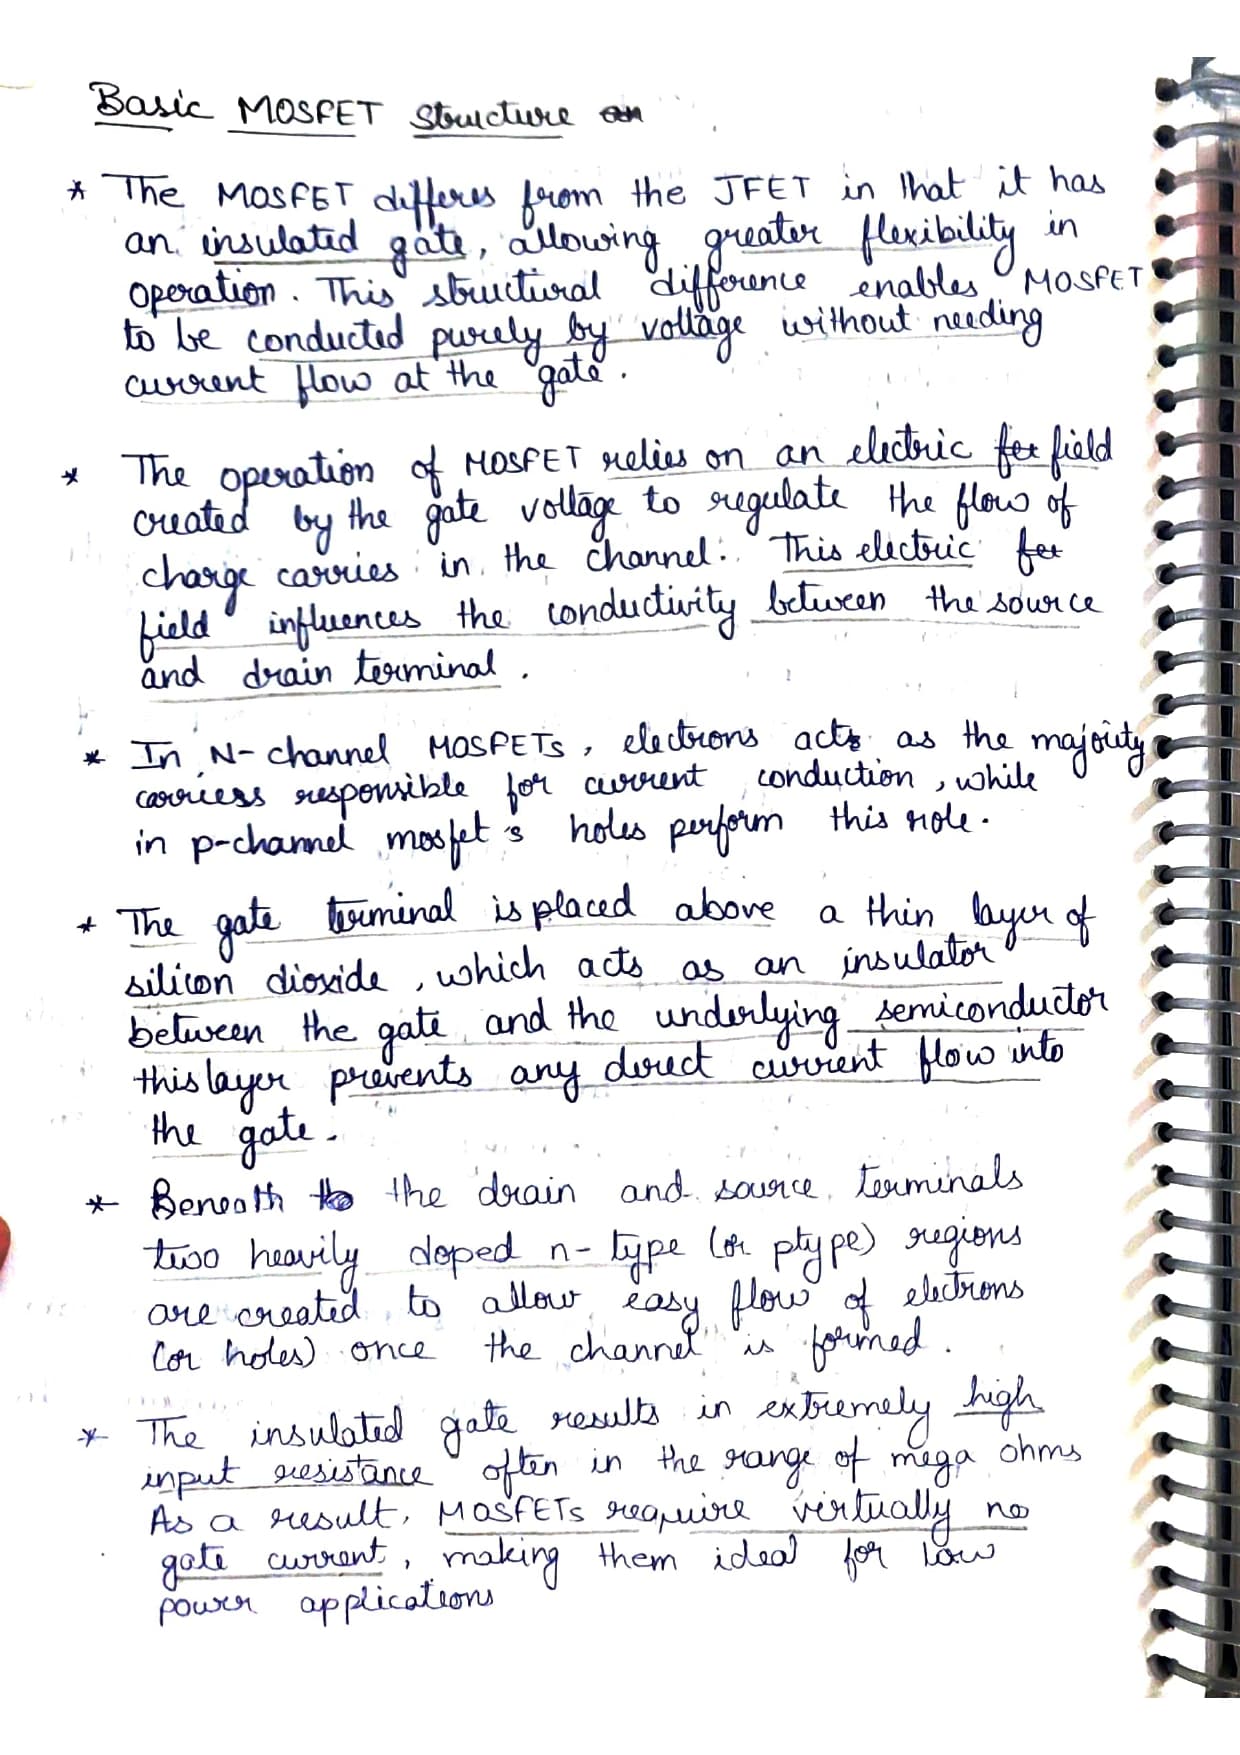 Basic MOSFET Structure
* The MOSFET differs from the JFET in that it has
an insulated gate, allowing greater flexibility in
operation. This structural difference enables MOSFET
to be conducted purely by voltage without needing
current flow at the gate.
* The operation of MOSFET relies on an electric field
created by the gate voltage to regulate the flow of
charge carries in the channel. This electric
field influences the conductivity between the source
and drain terminal.
* In N-channel MOSFETs, electrons acts as the majority
carriess responsible for current conduction, while
in p-channel mosfet's holes perform this role.
* The gate terminal is placed above a thin layer of
silicon dioxide, which acts as an insulator
between the gate and the underlying semiconductor
this layer prevents any direct current flow into
the gate.
* Beneath the drain and source terminals
two heavily doped n-type (or ptype) regions
are created to allow easy flow of electrons
(or holes) once the channel is formed.
* The insulated gate results in extremely high
input resistance often in the range of mega ohms
As a result, MOSFETs require virtually no
gate current, making them ideal for low
power applications